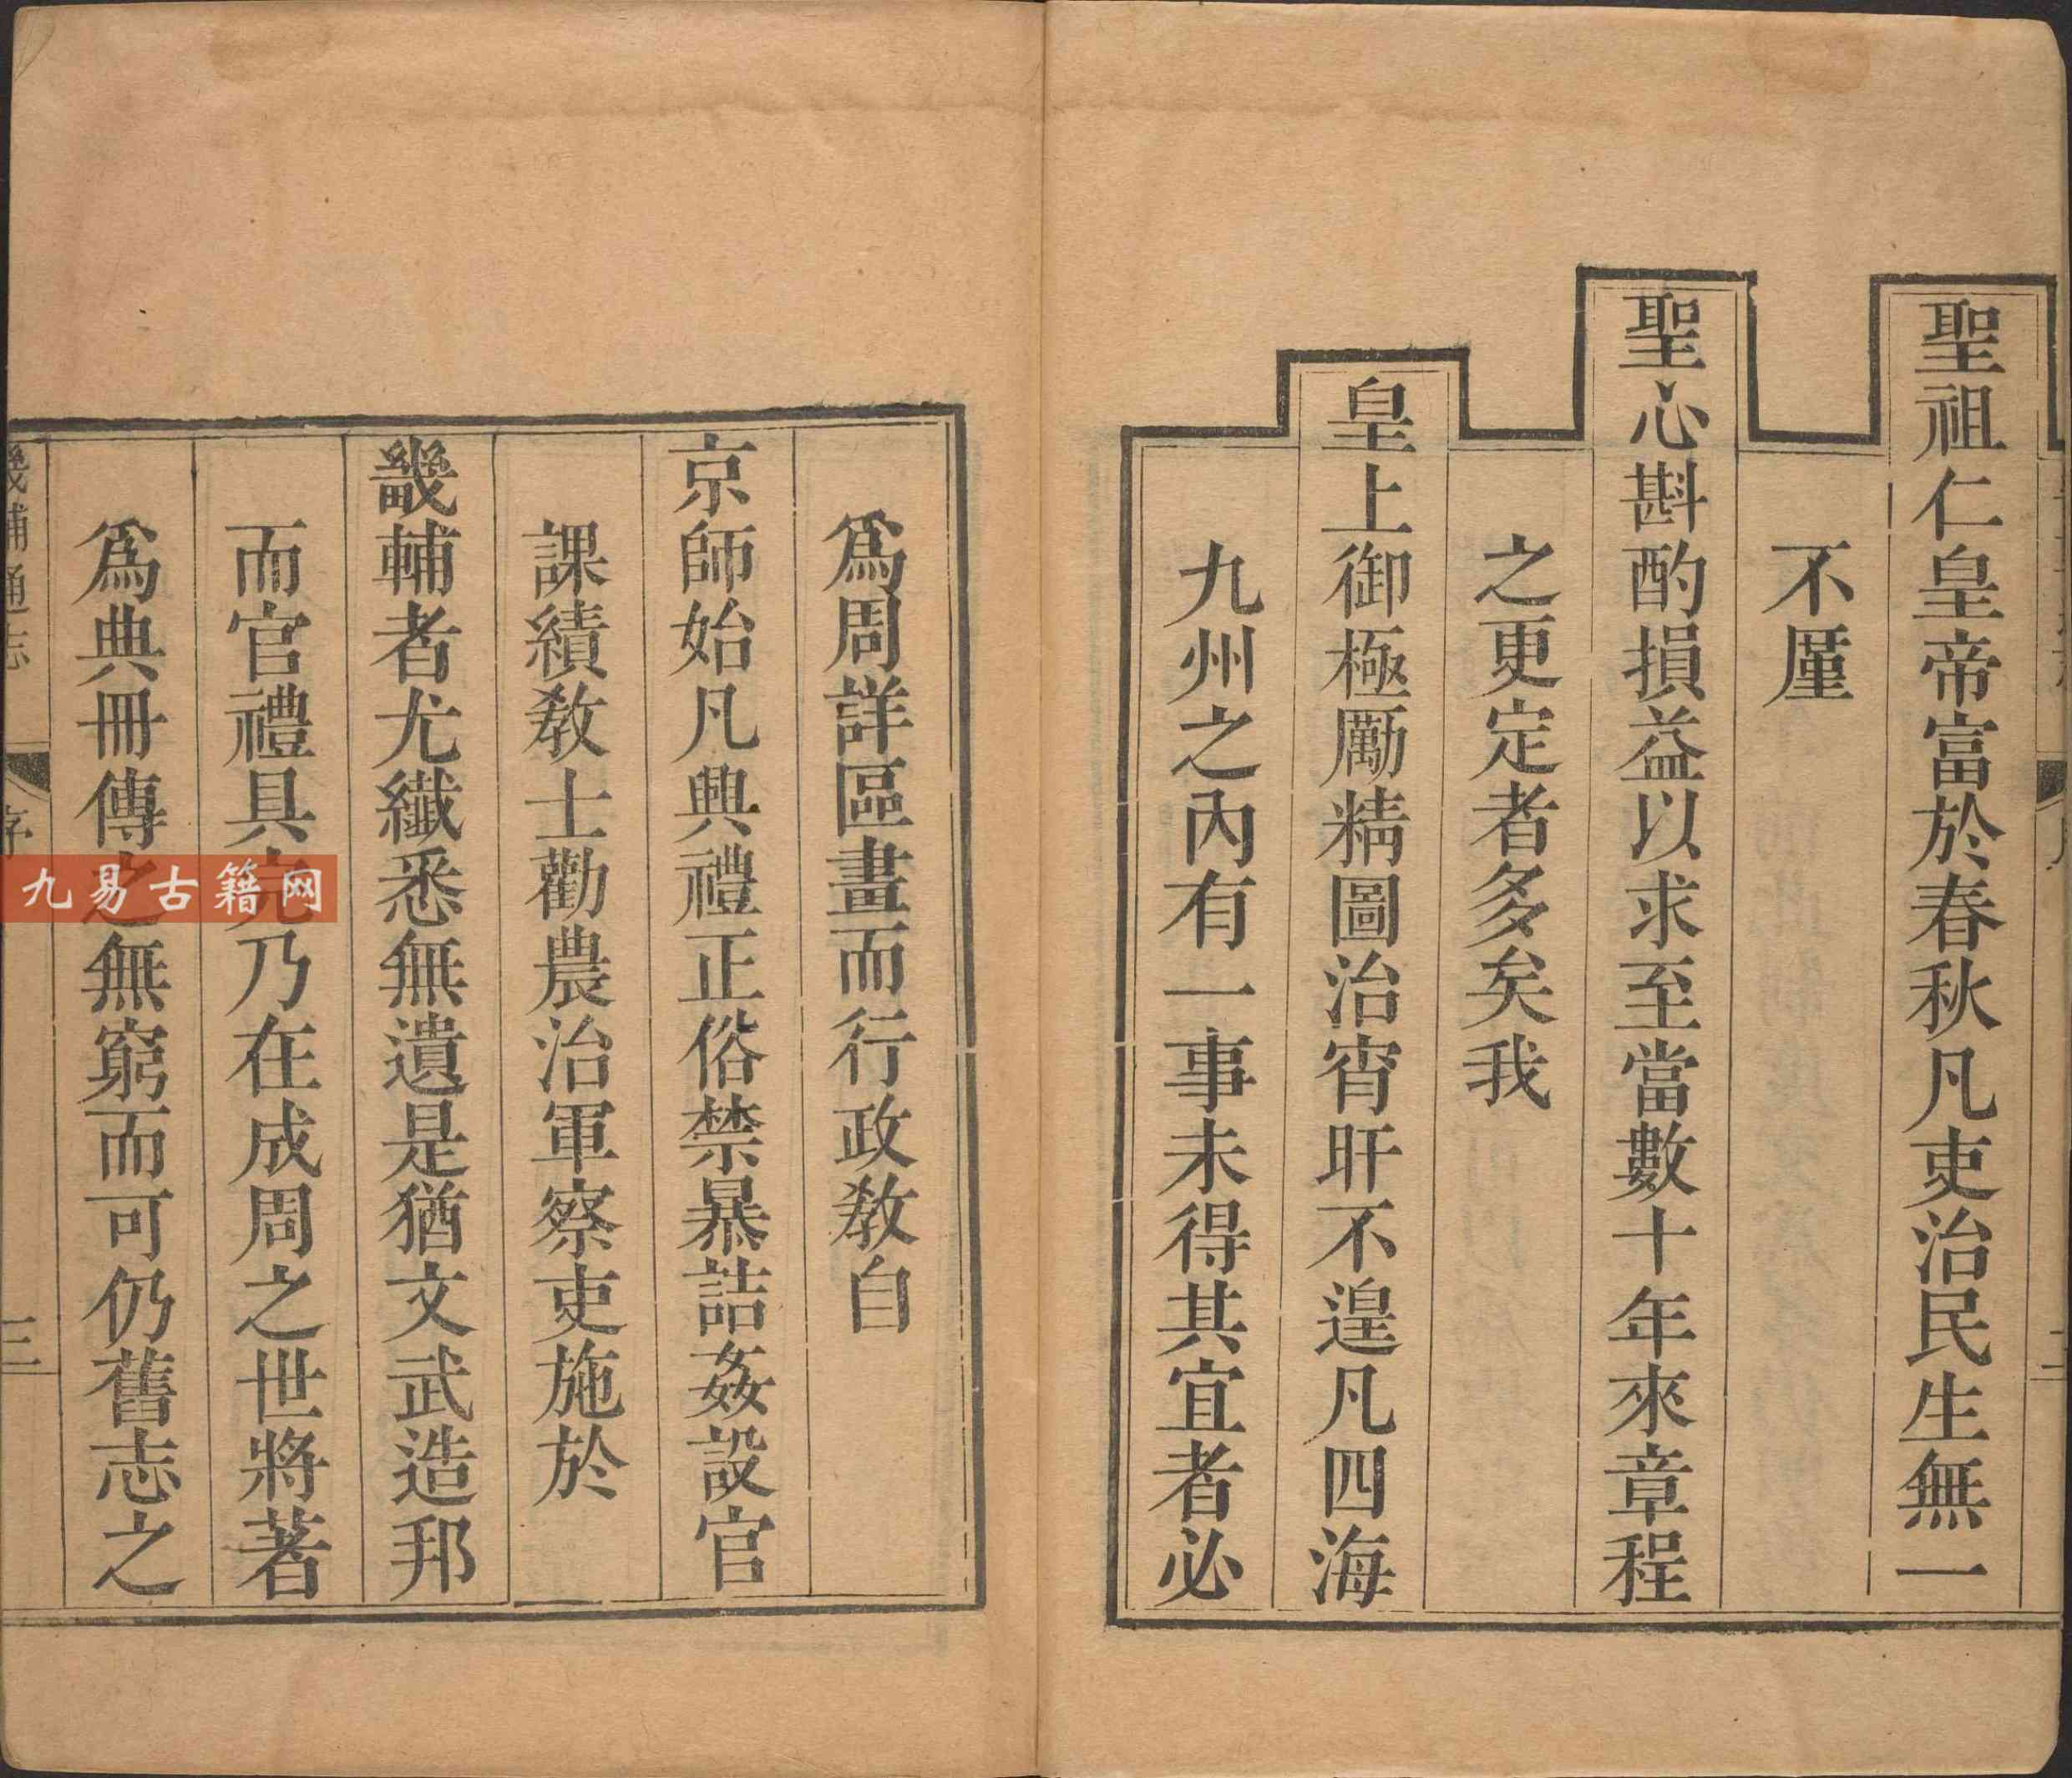 聖祖仁皇帝富於春秋凡吏治民生無一
不厪
聖心斟酌損益以求至當數十年來章程
之更定者多矣我
皇上御極勵精圖治宵旰不遑凡四海
九州之內有一事未得其宜者必
為周詳區畫而行政教自
京師始凡興禮正俗禁暴詰姦設官
課績教士勸農治軍察吏施於
畿輔者尤纖悉無遺是猶文武造邦
而官禮具完乃在成周之世將著
為典冊傳之無窮而可仍舊志之
畿輔通志
序
三
九易古籍网